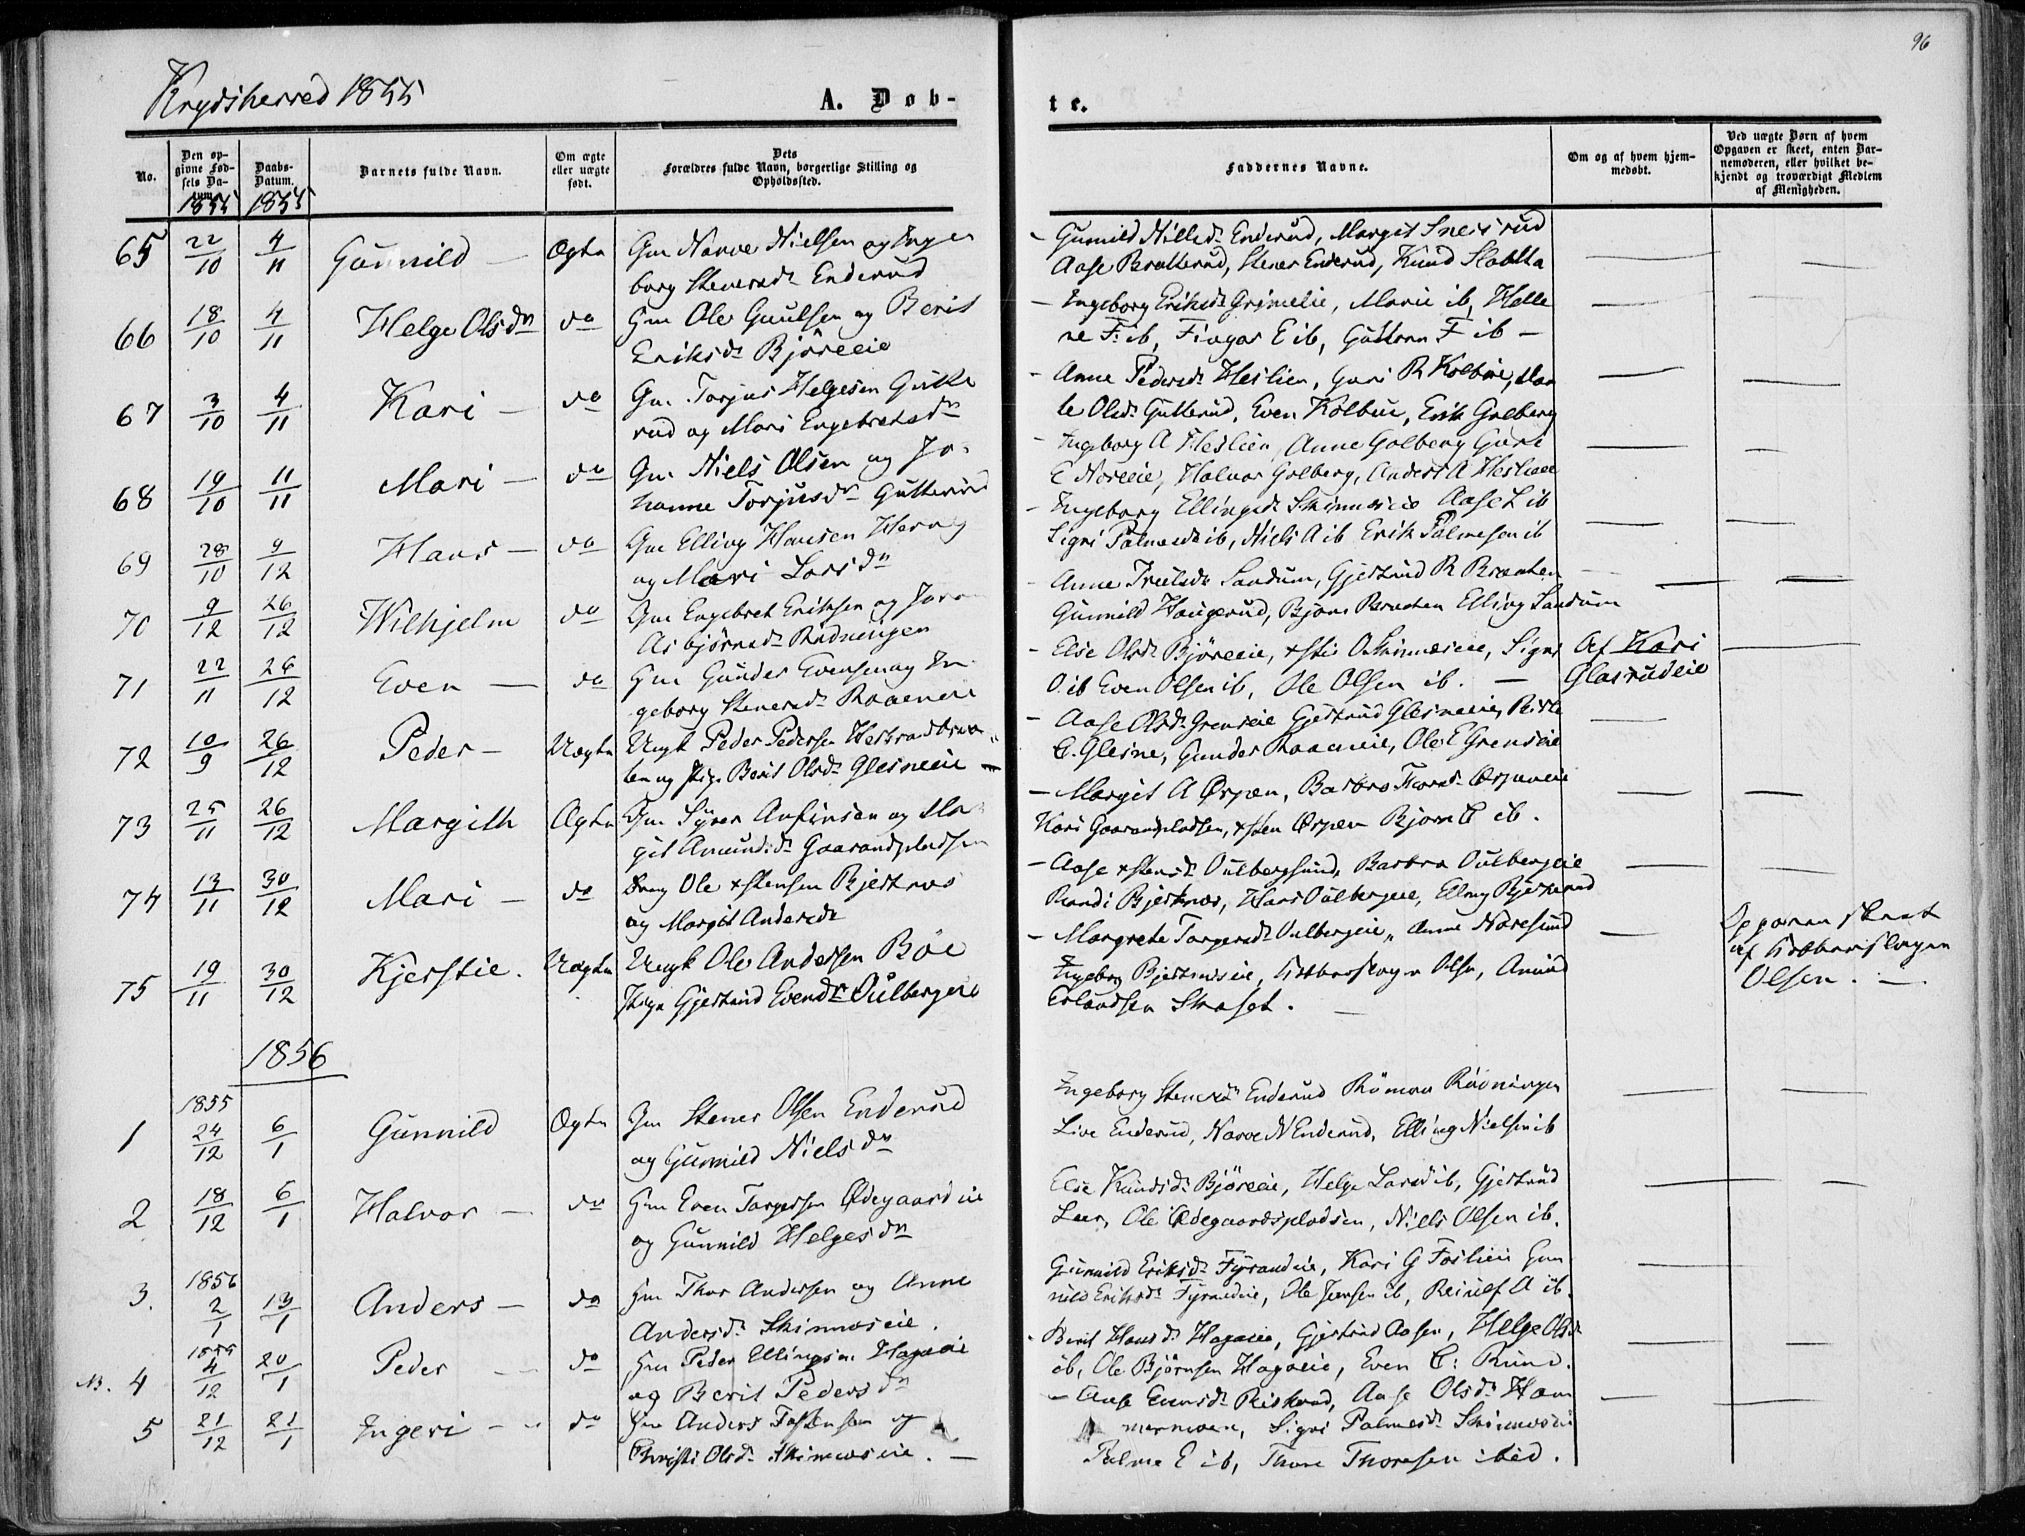 96
Krydsherred 1855
A. Døb-
te.
No.
Den opgivne Fødsels Datum.
1855
Daabs-Datum.
1855
Barnets fulde Navn.
Om ægte eller uægte født.
Dets Forældres fulde Navn, borgerlige Stilling og Opholdssted.
Faddernes Navne.
Om og af hvem hjemmedøbt.
Ved uægte Børn af hvem Opgaven er skeet, enten Barnemoderen, eller hvilket bekjendt og troværdigt Medlem af Menigheden.
65 22/10 4/11 Gunnild — Ægte Gm Narve Nielsen og Inge
borg Stenersdr Enderud
Gunnild Nillsdr Enderud, Margit
Aase Bratterud, Stener Enderud, Knud Slaatta
66 18/10 4/11 Helge Olsdn do Gm Ole Guulsen og Berit
Eriksdr Bjøreeie
Ingeborg Eriksdr Grimelie, Marie ib, Helle
ne F. ib, Fingar E ib, Guttorm F ib —
67 3/10 4/11 Kari — do Gm Torjus Helgesen Gutte
rud og Mari Engebretsdn
Anne Pedersdr Heslien, Guri R Kolbue, Mar
te Olsdr Gutterud, Even Kolbue, Erik Golberg
68 19/10 11/11 Mari — do Gm Niels Olsen og Jo-
hanne Torjusdr Gutterud
Ingeborg A Heslien, Anne Golberg Guri
E Noreeie, Halvor Golberg, Anders A Heslien
69 28/10 9/12 Hans — do Gm Elling Hansen
og Mari Larsdn
Ingeborg Ellingsdr Skinneseie Aase L ib
Sigri Palmesdr ib, Niels A ib Erik Palmesen ib
70 9/12 26/12 Wilhjelm do Gm Engebret Eriksen og
Asbjørnsdr Rudningen
Anne Truelsdr Sandum, Gjertrud R Braaten
Gunnild Haugerud, Bjørn Braaten Elling Sandum
71 22/11 26/12 Even — do Gm Gunder Evensen og In-
geborg Stenersdr Raaeneie
Elie Olsdr Bjøreeie, Sigri
O. ib Even Olsen ib, Ole Olsen ib. —
Af Kari
Glasrudeie
72 10/9 26/12 Peder — Uægte Ungk Peder Pedersen
ten og Pige Berit Olsdr Glesneeie —
Aase Olsdr Grenseie Gjertrud Glesneeie,
C. Glesne, Gunder Raaeneie, Ole E Grenseie
73 25/11 26/12 Margith Ægte Gm Syver Anfinsen og Ma
git Amundsdr Gaarandpladsen
Margit A Ørpen, Barbro Thorsdr Ørpeneie
Kari Gaarandpladsen, xsten Ørpen Bjørn C ib.
74 13/11 30/12 Mari — do Ole xstensen Bjertnæs
og Margit Andersdr
Aase xstensdr Oulbergsund, Barbra Oulbergeie
Randi Bjertnæs, Hans Oulbergeie, Elling Bjertnæs
75 19/11 30/12 Kjerstie. Uægte Ungk Ole Andersen Bøe
Pige Gjertrud Evensdr Oulbergeie
Margrete Torgersdr Oulbergeie, Anne Noresund
Ingeborg Bjertnæseie, Olsen, Amund
Erlandsen Skaset. —
Opgaven skeet
af
Olsen. —
1856
1855
1 24/12 6/1 Gunnild Ægte Gm Stener Olsen Enderud
og Gunnild Nielsdn
Ingeborg Stenersdr Enderud Rudningen
Live Enderud, Narve N Enderud, Elling Nielsen ib
2 18/12 6/1 Halvor — do Gm Even Torgersen Ødegaardeie
og Gunnild Helgesdn
Elie Knudsdr Bjøreeie, Helge Larsd ib, Gjertrud
Leer, Ole Ødegaardspladsen, Niels Olsen ib.
1856
3. 2/1 13/1 Anders — do Gm Thor Andersen og Anne
Andersdr Skinneseie.
Gunnild Eriksdr Fyrandeie, Kari G Foslieeie Gun
nild Eriksdr Fyrandeie, Ole Jensen ib, Reinulf A ib.
1855
NB. 4 4/12 20/1 Peder do Gm Peder Ellingsen Hagaeie
og Berit Pedersdn
Berit Hansdr Hagaeie, Gjertrud Aasen, Helge Olsdr
ib, Ole Bjørnsen Hagaeie, Even C: Rund.
5 21/12 21/1 Ingeri do Gm Anders Torstensen og
Christi Olsdr Skinneseie. —
Aase Evensdr Riskerud, Aase Olsdr Ham
mermoen, Sigri Palmesdr Skinneseie
Palme E ib, Thore Thoresen ibid.